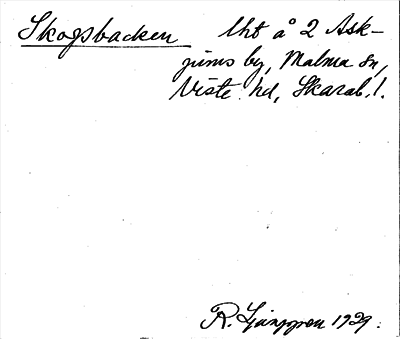 Skogsbacken lht å 2 Ask-
jums by, Malma sn,
Viste hd, Skarab. l.
R. Ljunggren 1929.